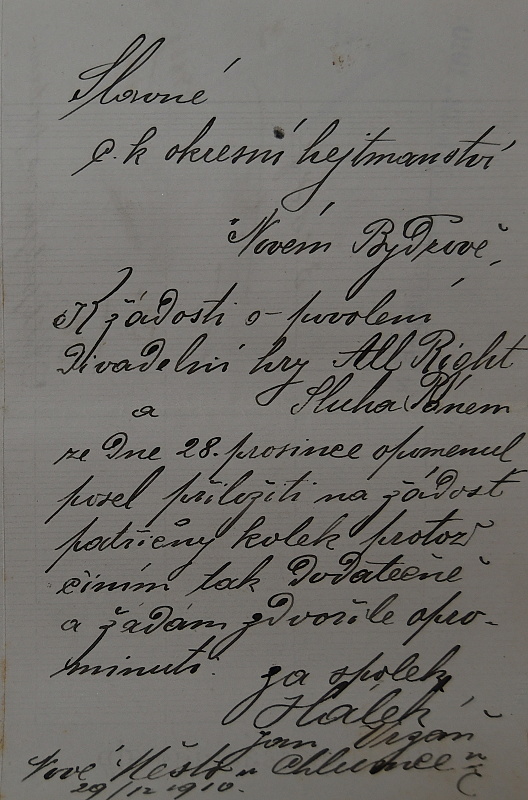 Slavné
c. k okresní hejtmanství
Novém Bydžově,
K žádosti o povolení
divadelní hry All Right
a Sluha Pánem
ze dne 28. prosince opomenul
posel přiložiti na žádost
patřičný kolek protož
činím tak dodatečně
a žádám zdvořile opro-
minutí.
za spolek
Hálek
Jan
Nové Město u Chlumce n/C
29/12 1910.